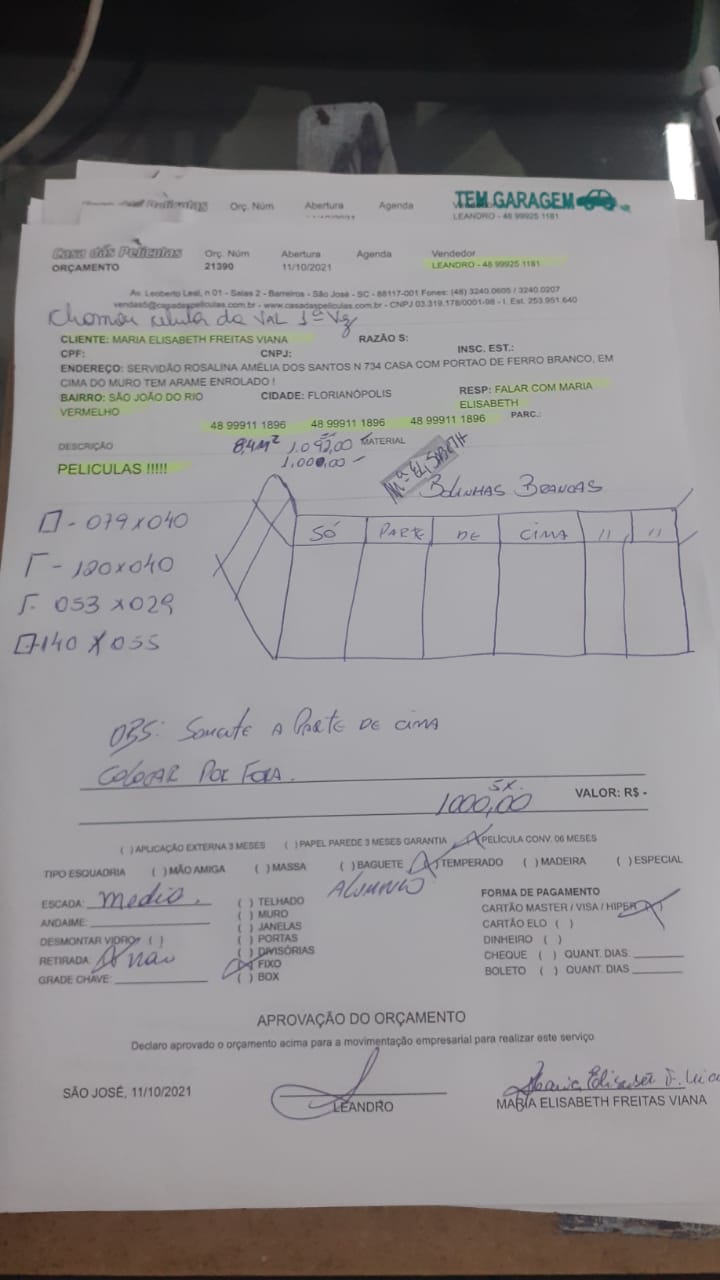 Orç. Núm Abertura Agenda
TEM GARAGEM
LEANDRO - 48 99925 1181
Casa das Películas Orç. Núm Abertura Agenda Vendedor
ORÇAMENTO 21390 11/10/2021 LEANDRO - 48 99925 1181
Av. Leoberto Leal, n 01 - Salas 2 - Barreiros - São José - SC - 88117-001 Fones: (48) 3240.0605 / 3240.0207
vendas5@casadaspeliculas.com.br - www.casadaspeliculas.com.br - CNPJ 03.319.178/0001-98 - I. Est. 253.951.640
Chamar celular da VAL 1ª Vez
CLIENTE: MARIA ELISABETH FREITAS VIANA RAZÃO S:
CPF: CNPJ: INSC. EST.:
ENDEREÇO: SERVIDÃO ROSALINA AMÉLIA DOS SANTOS N 734 CASA COM PORTAO DE FERRO BRANCO, EM
CIMA DO MURO TEM ARAME ENROLADO !
BAIRRO: SÃO JOÃO DO RIO VERMELHO CIDADE: FLORIANÓPOLIS RESP: FALAR COM MARIA ELISABETH
48 99911 1896 48 99911 1896 48 99911 1896 PARC.:
DESCRIÇÃO 8,4M² 1.092,00 MATERIAL
PELICULAS !!!!! 1.000,00 -
Mª ELISABETH
BOLINHAS BRANCAS
079 x 040
SÓ PARTE DE CIMA 11 11
120 x 040
053 x 029
140 x 055
OBS: Somente a PARTE DE CIMA
COLOCAR POR FORA.
5X.
1000,00 VALOR: R$ -
( ) APLICAÇÃO EXTERNA 3 MESES ( ) PAPEL PAREDE 3 MESES GARANTIA (X) PELÍCULA CONV. 06 MESES
TIPO ESQUADRIA ( ) MÃO AMIGA ( ) MASSA ( ) BAGUETE (X) TEMPERADO ( ) MADEIRA ( ) ESPECIAL
ALUMINIO
ESCADA: media ( ) TELHADO FORMA DE PAGAMENTO
( ) MURO CARTÃO MASTER / VISA / HIPER (X)
ANDAIME: ( ) JANELAS CARTÃO ELO ( )
DESMONTAR VIDRO: ( ) ( ) PORTAS DINHEIRO ( )
RETIRADA: não ( ) DIVISÓRIAS CHEQUE ( ) QUANT. DIAS.
(X) FIXO BOLETO ( ) QUANT. DIAS
GRADE CHAVE: ( ) BOX
APROVAÇÃO DO ORÇAMENTO
Declaro aprovado o orçamento acima para a movimentação empresarial para realizar este serviço
SÃO JOSÉ, 11/10/2021
Maria Elisabeth F.
LEANDRO MARIA ELISABETH FREITAS VIANA